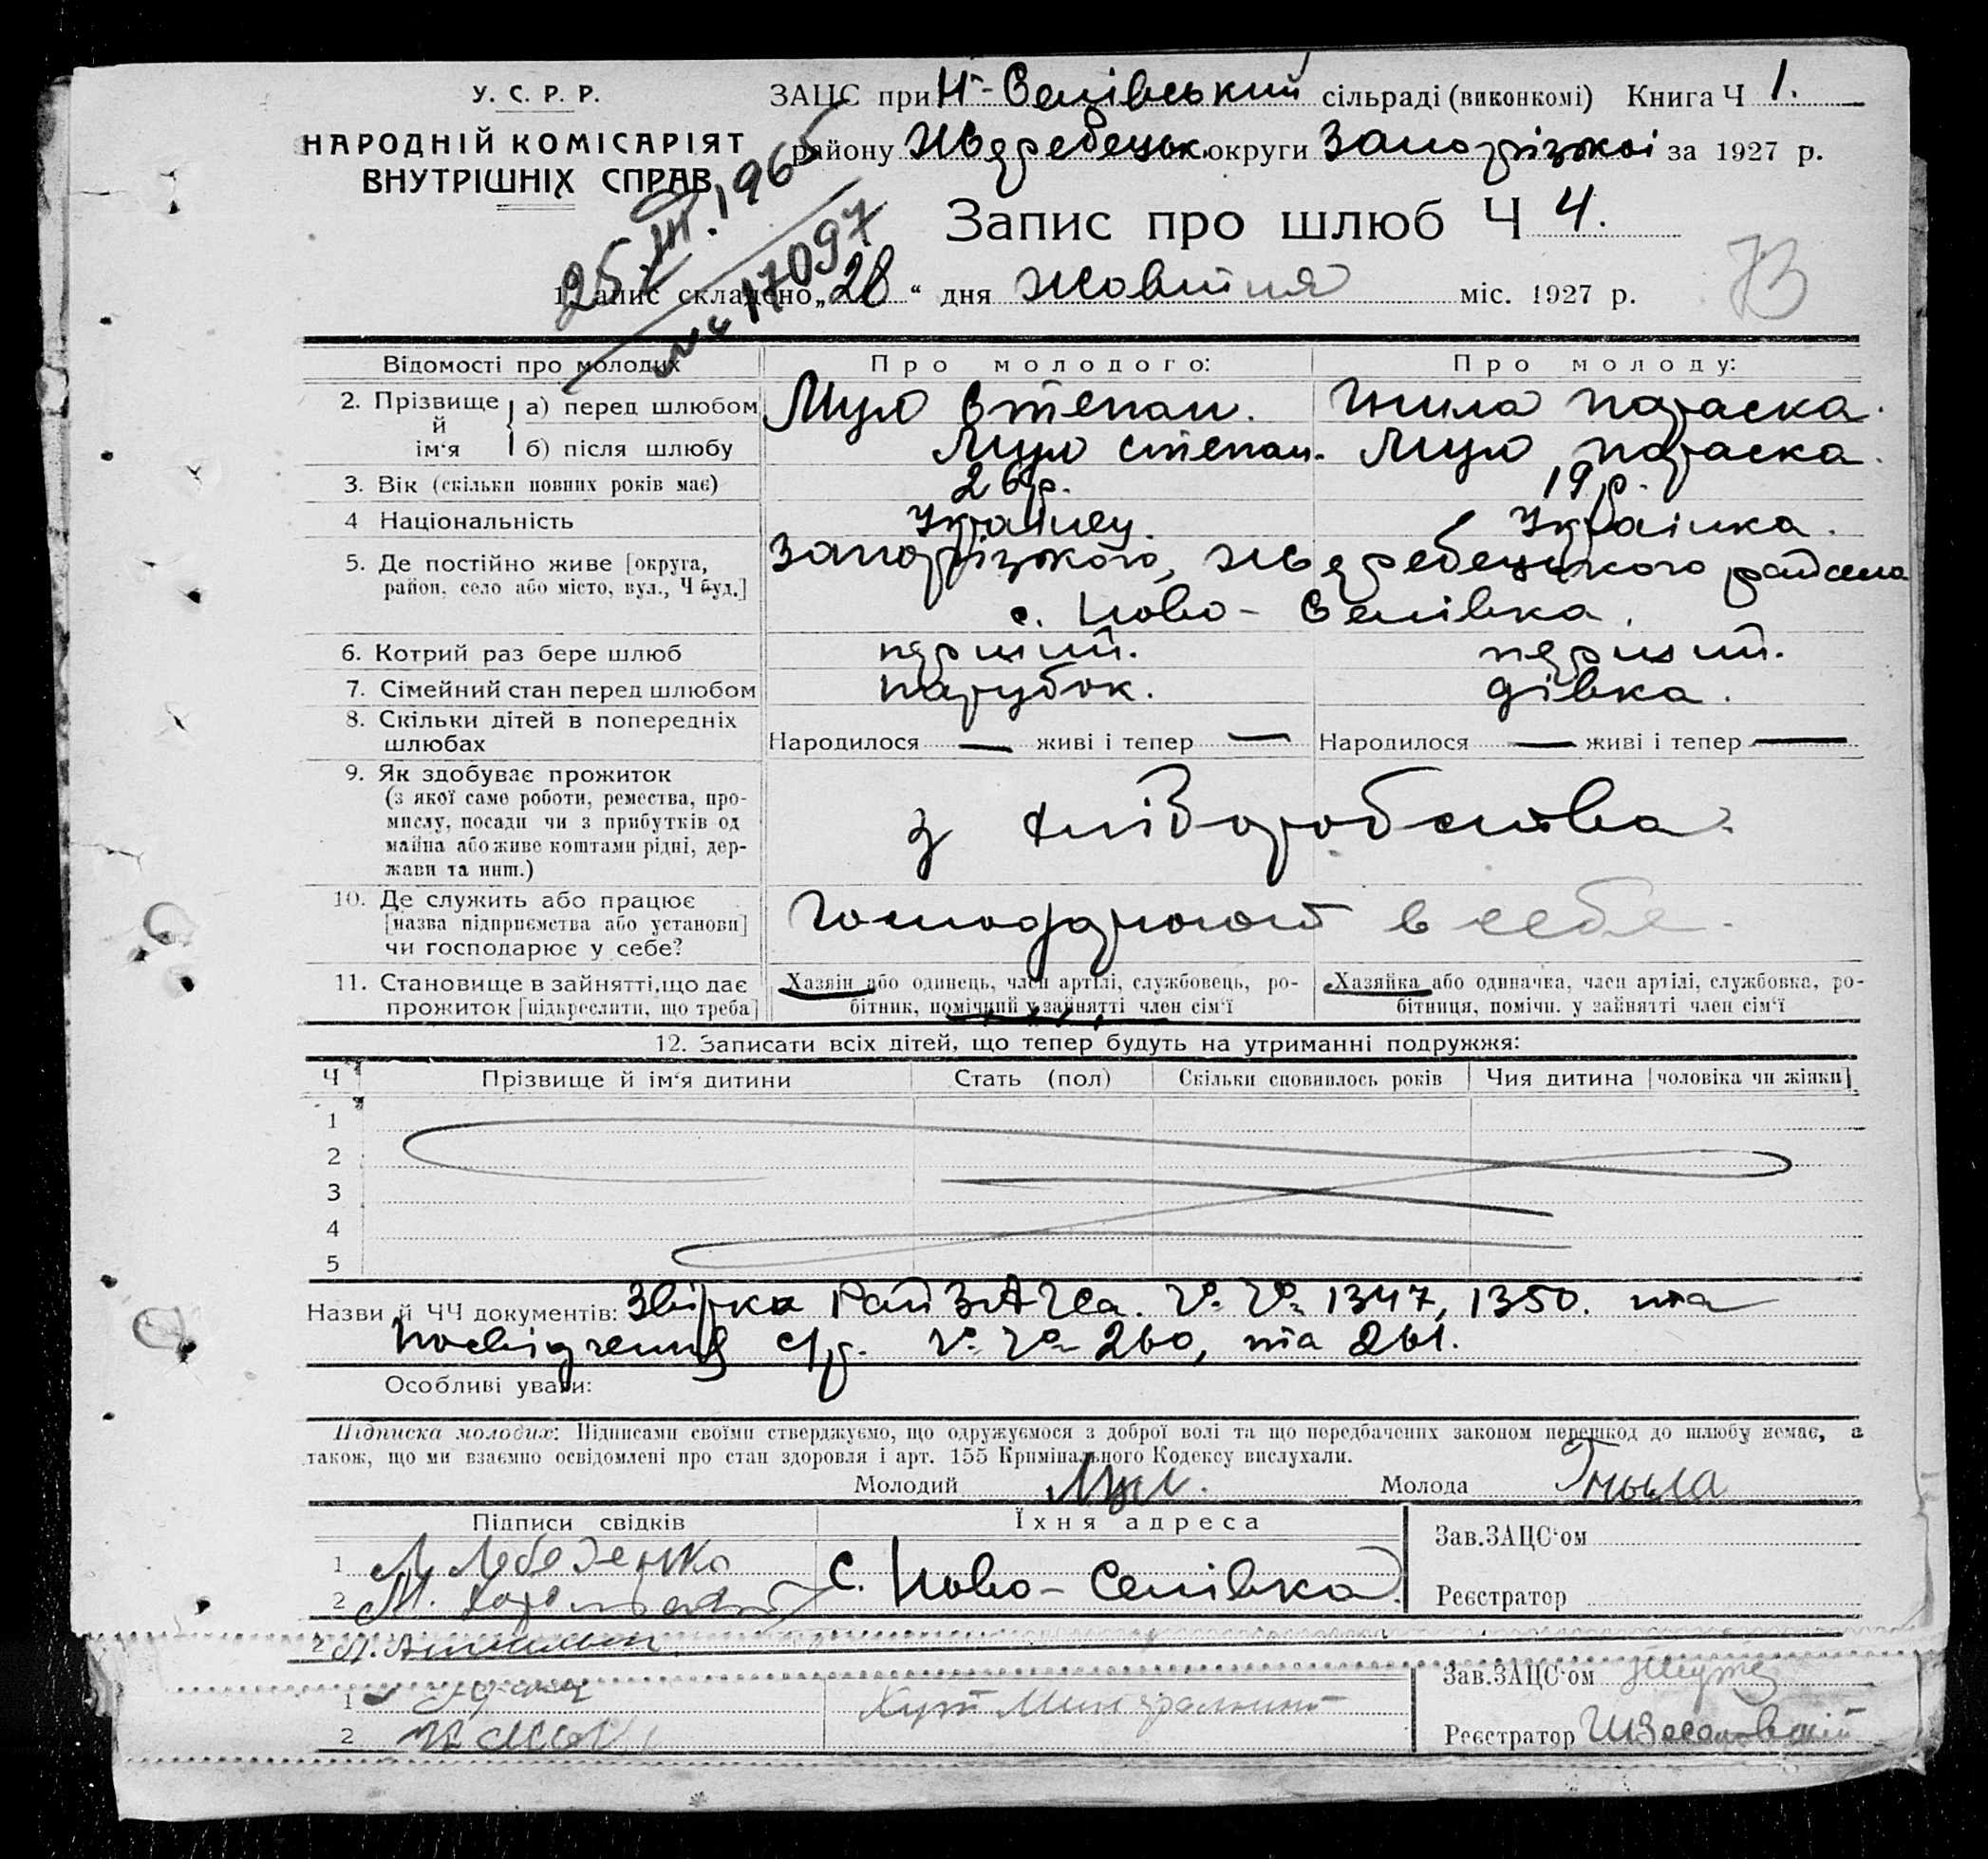 У. С. Р. Р.
НАРОДНІЙ КОМІСАРІЯТ
ВНУТРІШНІХ СПРАВ
ЗАЦС при Н-Селівський сільраді (виконкомі) Книга Ч 1.
району Жеребецьк. округи Запорізької за 1927 р.
25.III.1965
№ 17097
Запис про шлюб Ч 4.
1. Запис складено „28“ дня Жовтня міс. 1927 р.
Відомості про молодих
Про молодого:
Про молоду:
2. Прізвище й ім‘я
а) перед шлюбом
Степан.
Гнила Параска.
б) після шлюбу
Степан.
Параска.
3. Вік (скільки повних років має)
26 р.
19 р.
4 Національність
Украінец.
Украінка.
5. Де постійно живе [округа,
район, село або місто, вул., Ч буд.]
Запорізького, Жеребецького
с. Ново-Селівка.
6. Котрий раз бере шлюб
перший.
перший.
7. Сімейний стан перед шлюбом
парубок.
дівка.
8. Скільки дітей в попередніх
шлюбах
Народилося — живі і тепер —
Народилося — живі і тепер —
9. Як здобуває прожиток
(з якої саме роботи, ремества, про-
мислу, посади чи з прибутків од
майна або живе коштами рідні, дер-
жави та инш.)
з хліборобства.
10. Де служить або працює
[назва підприємства або установи]
чи господарює у себе?
господарюют в себе.
11. Становище в зайнятті, що дає
прожиток [підкреслити, що треба]
Хазяїн або одинець, член артілі, службовець, ро-
бітник, помічний у зайнятті член сім‘ї
Хазяйка або одиначка, член артілі, службовка, ро-
бітниця, помічн. у зайнятті член сім‘ї
12. Записати всіх дітей, що тепер будуть на утриманні подружжя:
Ч
Прізвище й ім‘я дитини
Стать (пол)
Скільки сповнилось років
Чия дитина [чоловіка чи жінки]
1
2
3
4
5
Назви й ЧЧ документів: Звірка РайЗАГСа. №№ 1347, 1350. та
посвідчення с/р. №№ 260, та 261.
Особливі уваги:
Підписка молодих: Підписами своїми стверджуємо, що одружуємося з доброї волі та що передбачених законом перешкод до шлюбу немає, а
також, що ми взаємно освідомлені про стан здоровля і арт. 155 Кримінального Кодексу вислухали.
Молодий
Молода Гныла
Підписи свідків
Їхня адреса
1 Лебеденко
2 М.
с. Ново-Селівка.
Зав.ЗАЦС‘ом
Реєстратор
2
1
2
Хут
Зав.ЗАЦС‘ом
Реєстратор